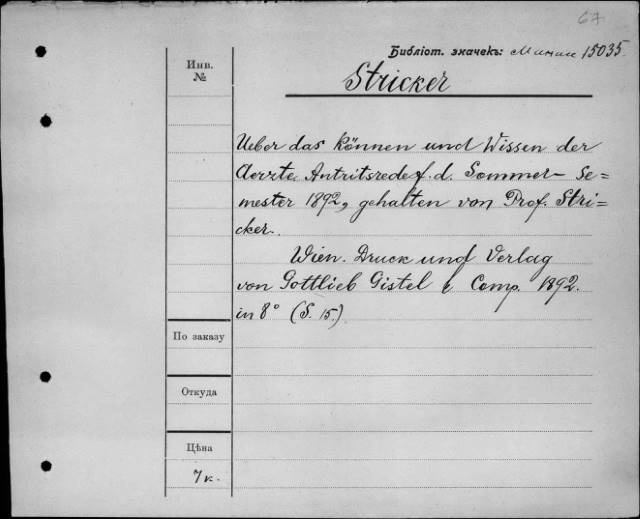 67
Библіот. значекъ: 15035.
Инв.
№
Stricker
Ueber das Können und Wissen der
Aerzte, Antritsrede f. d. Sommer- Se=
mester 1892, gehalten von Prof. Stri=
cker.
Wien. Druck und Verlag
von Gottlieb Gistel & Comp. 1892.
in 8° (S. 15.)
По заказу
Откуда
Цѣна
7 к.